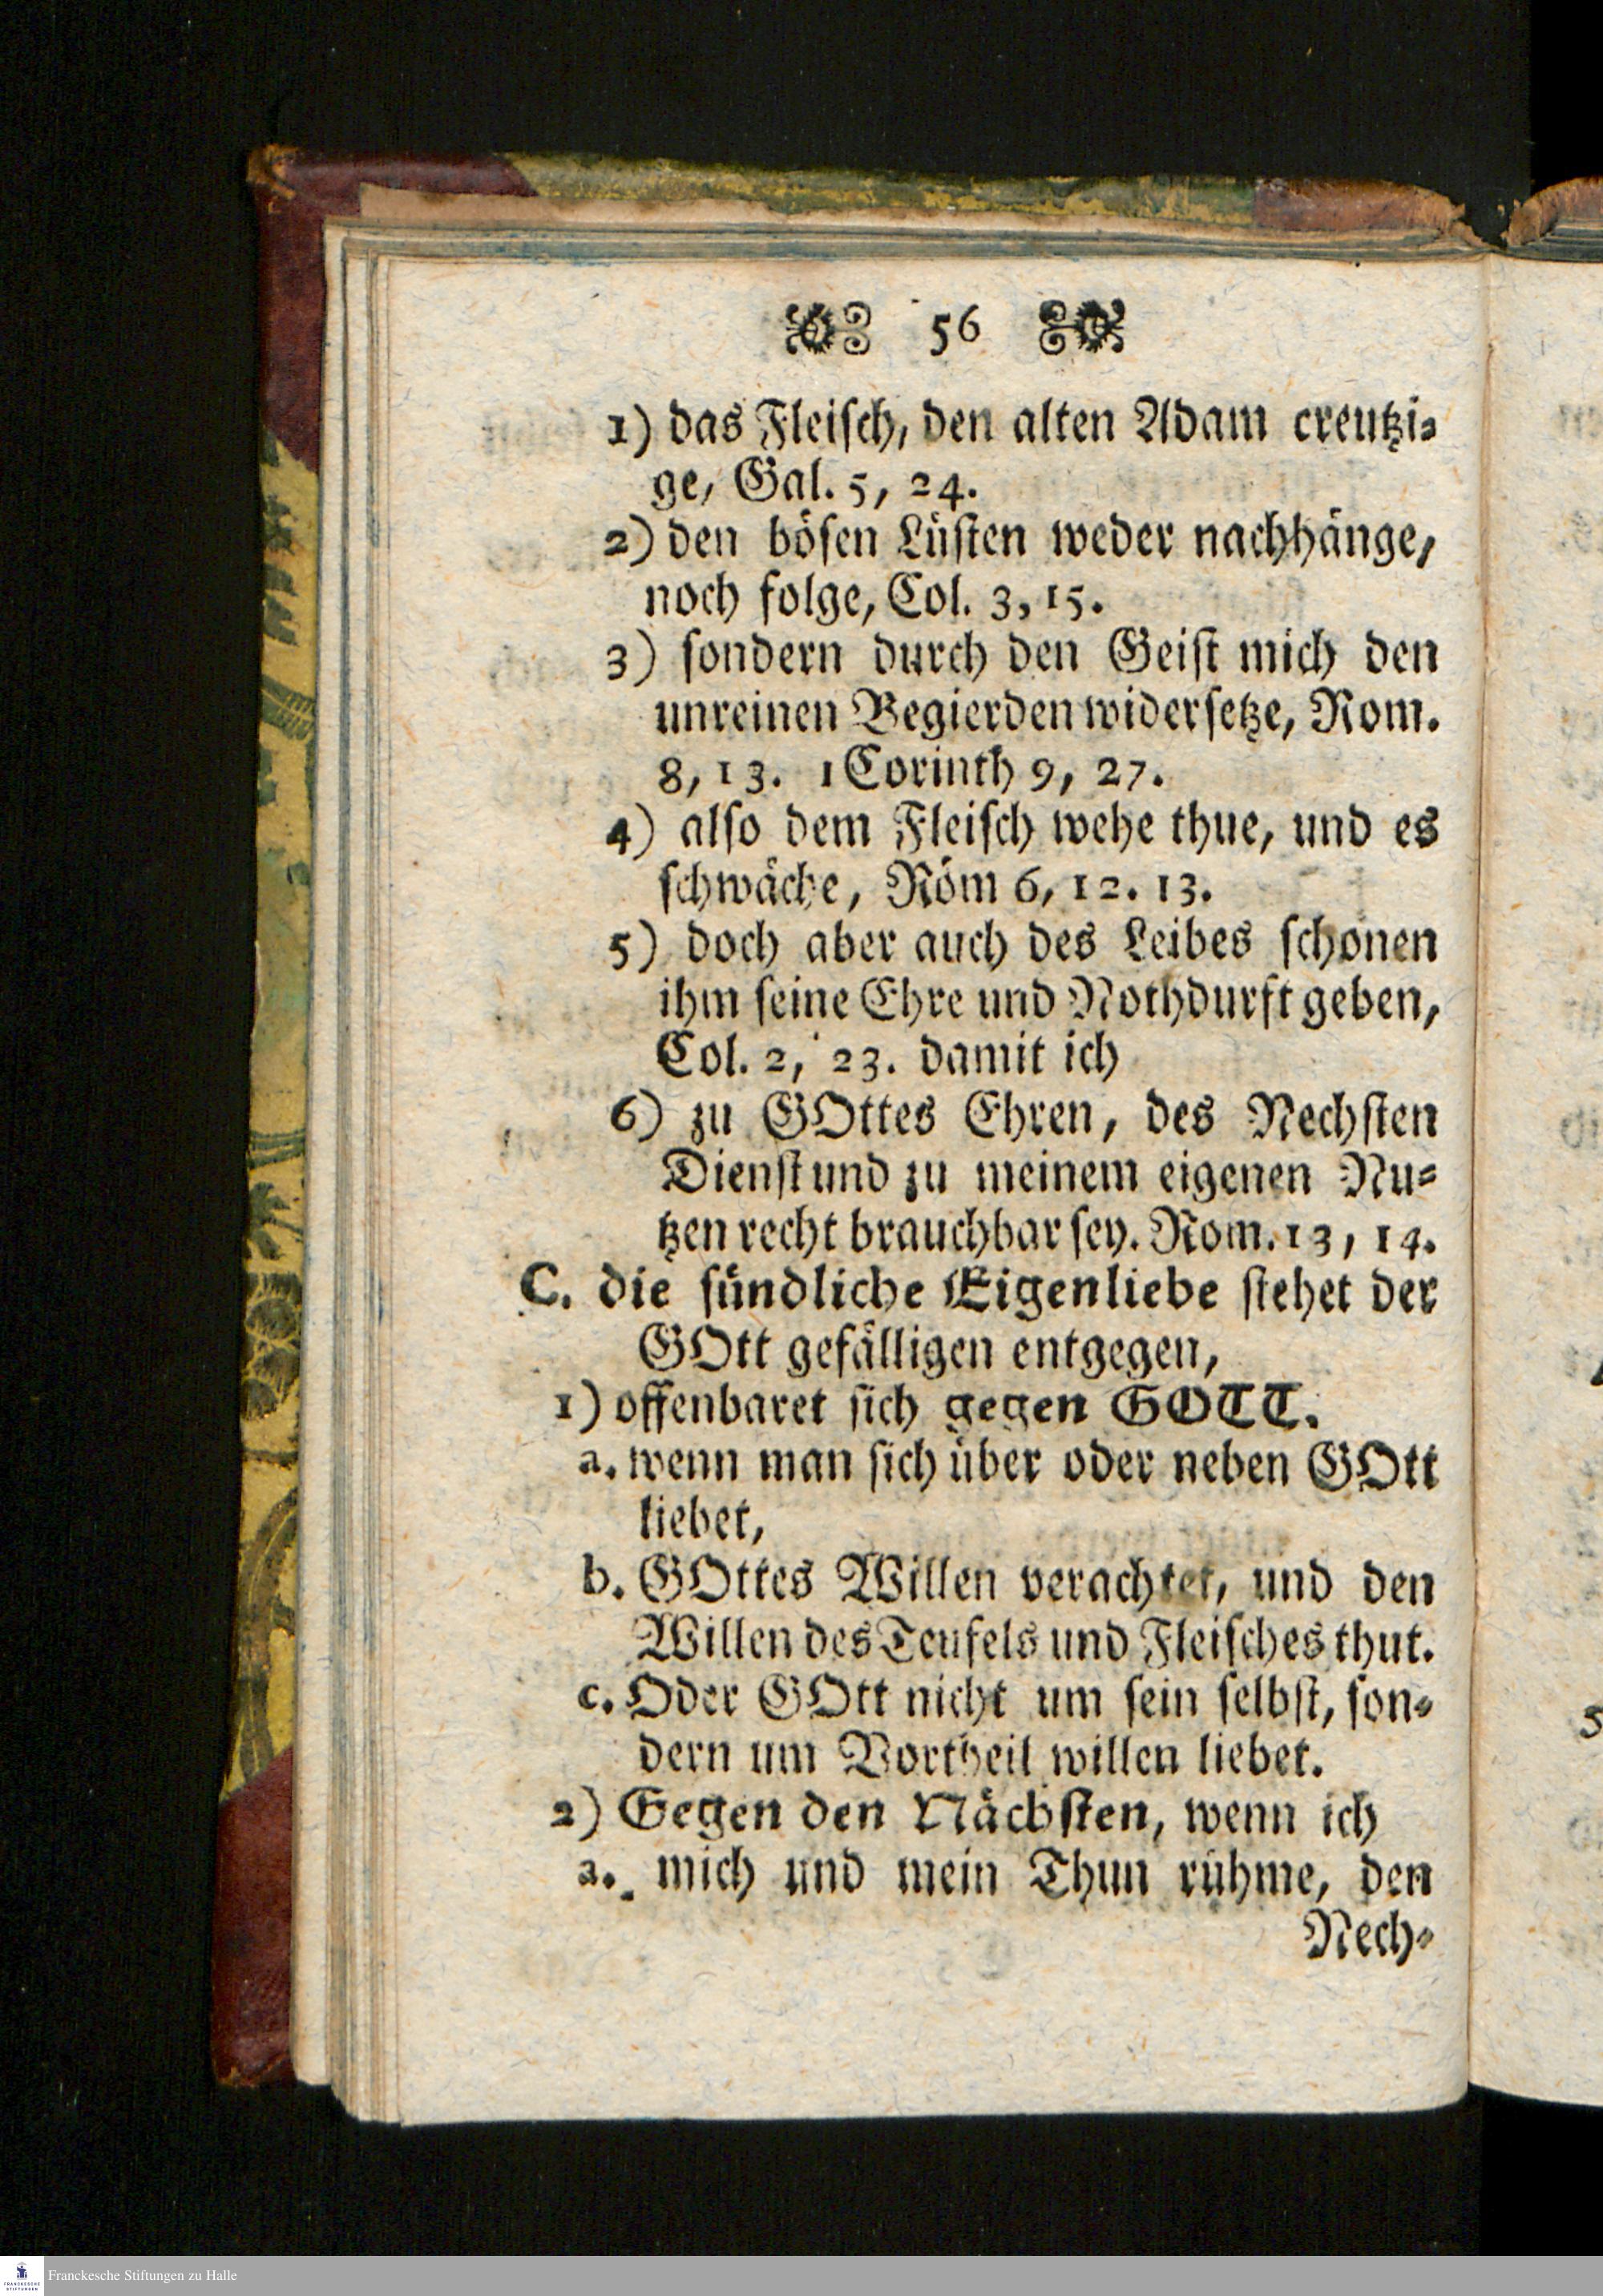 56
1) das Fleiſch, den alten Adam creutzi⸗
ge, Gal. 5, 24.
2) den böſen Lüſten weder nachhänge,
noch folge, Col. 3, 15.
3) ſondern durch den Geiſt mich den
unreinen Begierden widerſetze, Rom.
8, 13. 1 Corinth 9, 27.
4) alſo dem Fleiſch wehe thue, und es
ſchwäche, Röm 6, 12. 13.
5) doch aber auch des Leibes ſchonen
ihm ſeine Ehre und Nothdurft geben,
Col. 2, 23. damit ich
6) zu GOttes Ehren, des Nechſten
Dienſt und zu meinem eigenen Nu⸗
tzen recht brauchbar ſey. Rom. 13, 14.
C. die ſündliche Eigenliebe ſtehet der
GOtt gefälligen entgegen,
1) offenbaret ſich gegen GOTT.
a. wenn man ſich über oder neben GOtt
liebet,
b. GOttes Willen verachtet, und den
Willen des Teufels und Fleiſches thut.
c. Oder GOtt nicht um ſein ſelbſt, ſon⸗
dern um Vortheil willen liebet.
2) Gegen den Nächſten, wenn ich
a. mich und mein Thun rühme, den
Nech⸗
Franckesche Stiftungen zu Halle